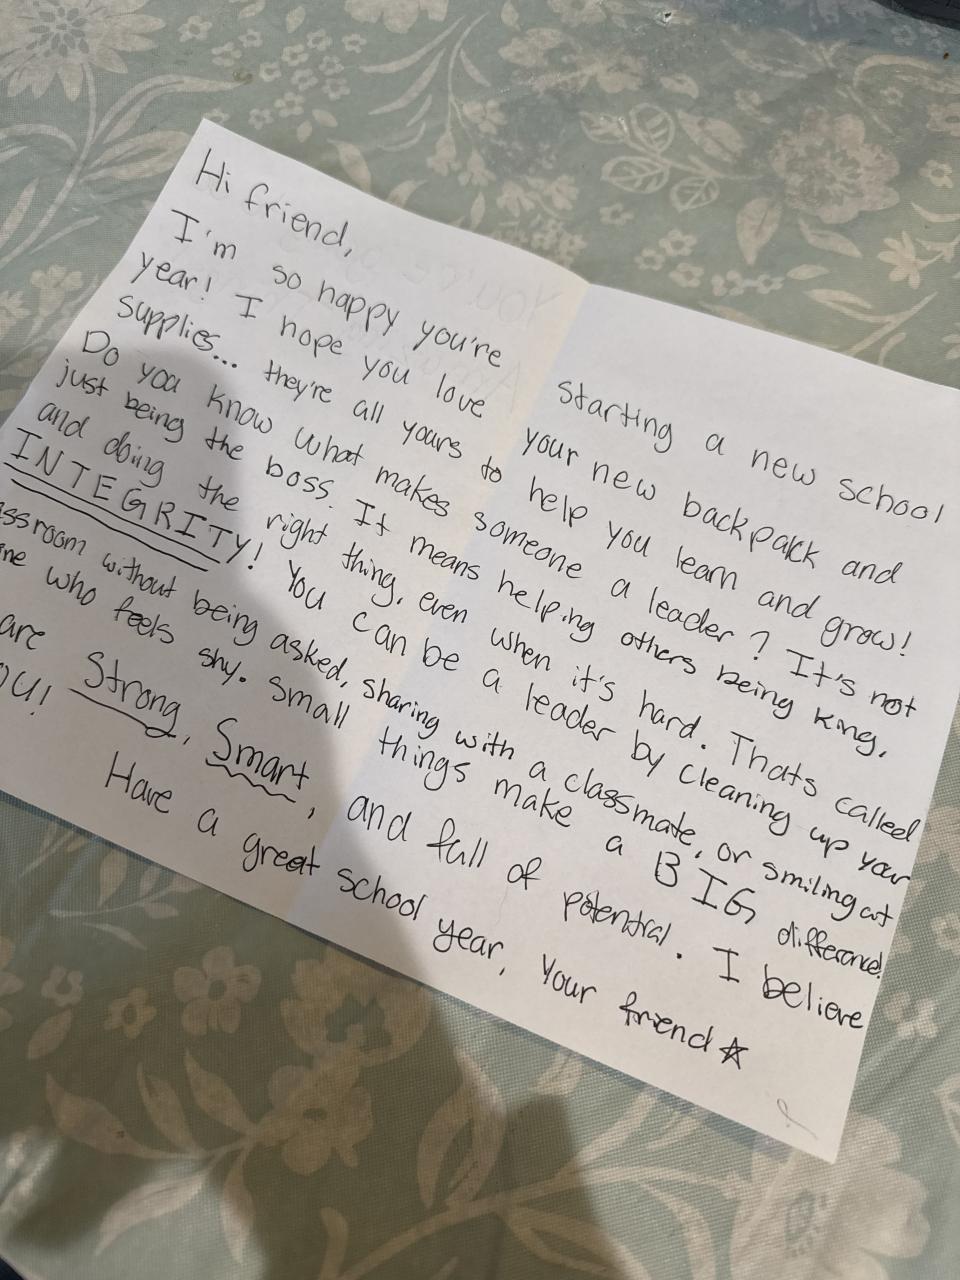 Hi friend,
I'm so happy you're starting a new school
year! I hope you love your new backpack and
supplies... they're all yours to help you learn and grow!
Do you know what makes someone a leader? It's not
just being the boss. It means helping others being king,
and doing the right thing, even when it's hard. Thats called
INTEGRITY! You can be a leader by cleaning up your
ssroom without being asked, sharing with a classmate, or smiling at
ne who feels shy. small things make a BIG difference!
are Strong, Smart, and full of potential. I believe
OU!
Have a great school year, Your friend ☆